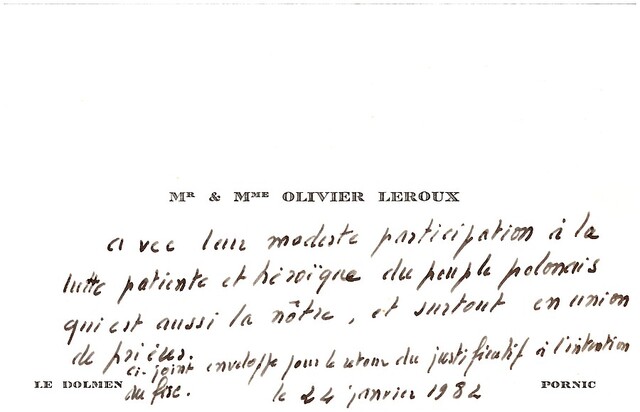 Mr & Mme OLIVIER LEROUX
avec leur modeste participation à la
lutte patiente et héroïque du peuple polonais
qui est aussi la nôtre, et surtout en union
de prières.
ci-joint enveloppe pour le retour du justificatif à l'intention
du fisc.
le 24 janvier 1982
LE DOLMEN
PORNIC